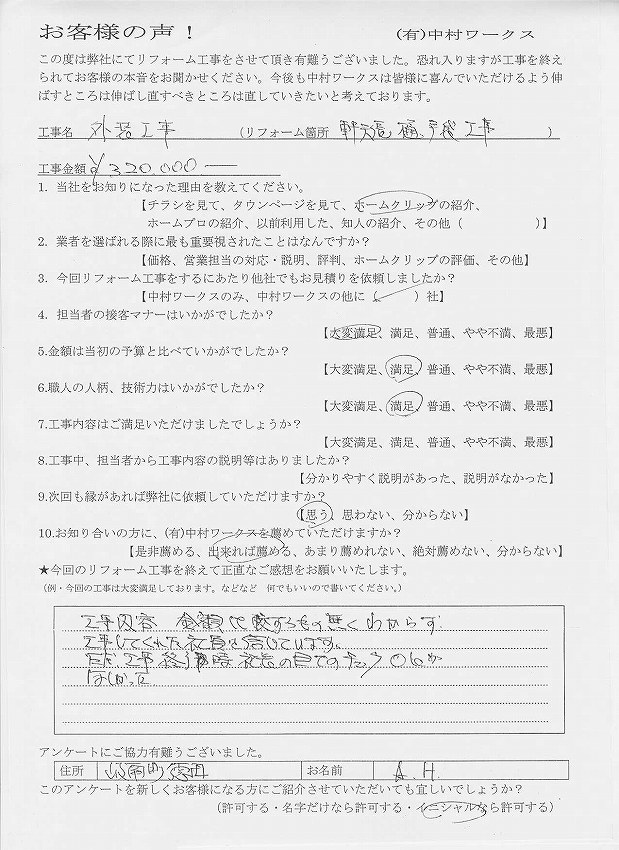 お客様の声！　(有)中村ワークス
この度は弊社にてリフォーム工事をさせて頂き有難うございました。恐れ入りますが工事を終え
られてお客様の本音をお聞かせください。今後も中村ワークスは皆様に喜んでいただけるよう伸
ばすところは伸ばし直すべきところは直していきたいと考えております。
工事名　外装工事　(リフォーム箇所　軒天 樋 工事　)
工事金額 ¥320,000ー
1. 当社をお知りになった理由を教えてください。
【チラシを見て、タウンページを見て、ホームクリップの紹介、
ホームプロの紹介、以前利用した、知人の紹介、その他（　　　　　）】
2. 業者を選ばれる際に最も重要視されたことはなんですか？
【価格、営業担当の対応・説明、評判、ホームクリップの評価、その他】
3. 今回リフォーム工事をするにあたり他社でもお見積りを依頼しましたか？
【中村ワークスのみ、中村ワークスの他に（　　）社】
4. 担当者の接客マナーはいかがでしたか？
【大変満足、満足、普通、やや不満、最悪】
5.金額は当初の予算と比べていかがでしたか？
【大変満足、満足、普通、やや不満、最悪】
6.職人の人柄、技術力はいかがでしたか？
【大変満足、満足、普通、やや不満、最悪】
7.工事内容はご満足いただけましたでしょうか？
【大変満足、満足、普通、やや不満、最悪】
8.工事中、担当者から工事内容の説明等はありましたか？
【分かりやすく説明があった、説明がなかった】
9.次回も縁があれば弊社に依頼していただけますか？
【思う、思わない、分からない】
10.お知り合いの方に、(有)中村ワークスを薦めていただけますか？
【是非薦める、出来れば薦める、あまり薦めれない、絶対薦めない、分からない】
★今回のリフォーム工事を終えて正直なご感想をお願いいたします。
（例・今回の工事は大変満足しております。などなど　何でもいいので書いてください。）
工事内容 金額 比較するもの無くわからず.
工事してくれた社員を信じています。
ただ工事終う時 社名の目でのチェックOKが
ほしかった
アンケートにご協力有難うございました。
住所　お名前　A.H.
このアンケートを新しくお客様になる方にご紹介させていただいても宜しいでしょうか？
（許可する・名字だけなら許可する・イニシャルなら許可する）